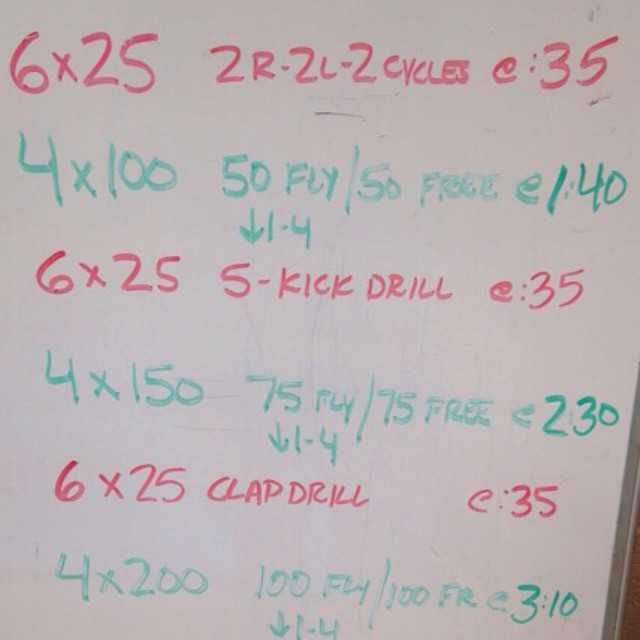 6x25 2R-2L-2 CYCLES @ :35
4x100 50 FLY/50 FREE @ 1:40
↓1-4
6x25 5-KICK DRILL @ :35
4x150 75 FLY/75 FREE @ 2:30
↓1-4
6x25 CLAP DRILL @ :35
4x200 100 FLY/100 FR @ 3:10
↓1-4